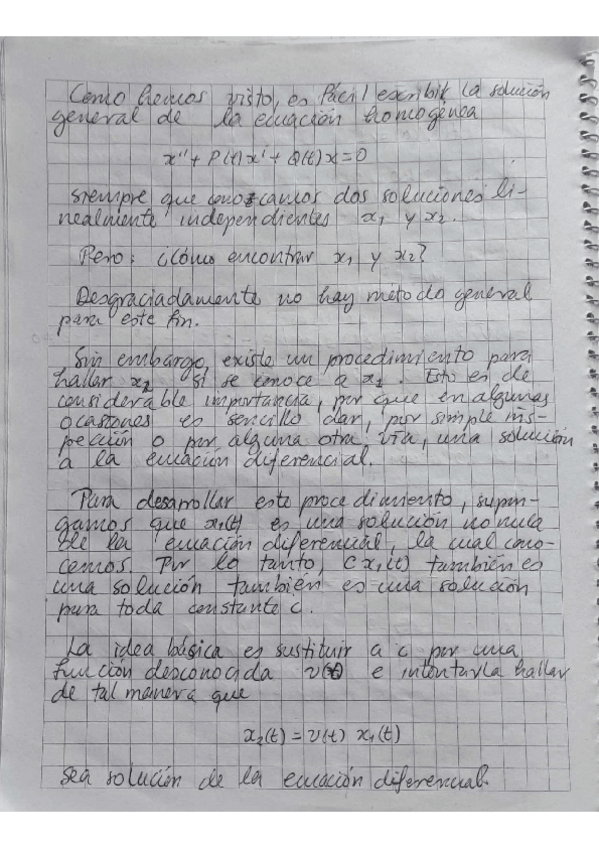 Como hemos visto, es fácil escribir la solución
general de la ecuación homogénea
x'' + P(t)x' + Q(t)x = 0
siempre que conozcamos dos soluciones li-
nealmente independientes x₁ y x₂.
Pero: ¿Cómo encontrar x₁ y x₂?
Desgraciadamente no hay método general
para este fin.
Sin embargo, existe un procedimiento para
hallar x₂ si se conoce a x₁. Esto es de
considerable importancia, por que en algunas
ocasiones es sencillo dar, por simple ins-
pección o por alguna otra vía, una solución
a la ecuación diferencial.
Para desarrollar este procedimiento, supon-
gamos que x₁(t) es una solución no nula
de la ecuación diferencial, la cual cono-
cemos. Por lo tanto, c x₁(t) también es
una solución también es una solución
para toda constante c.
La idea básica es sustituir a c por una
función desconocida v(t) e intentarla hallar
de tal manera que
x₂(t) = v(t) x₁(t)
sea solución de la ecuación diferencial.